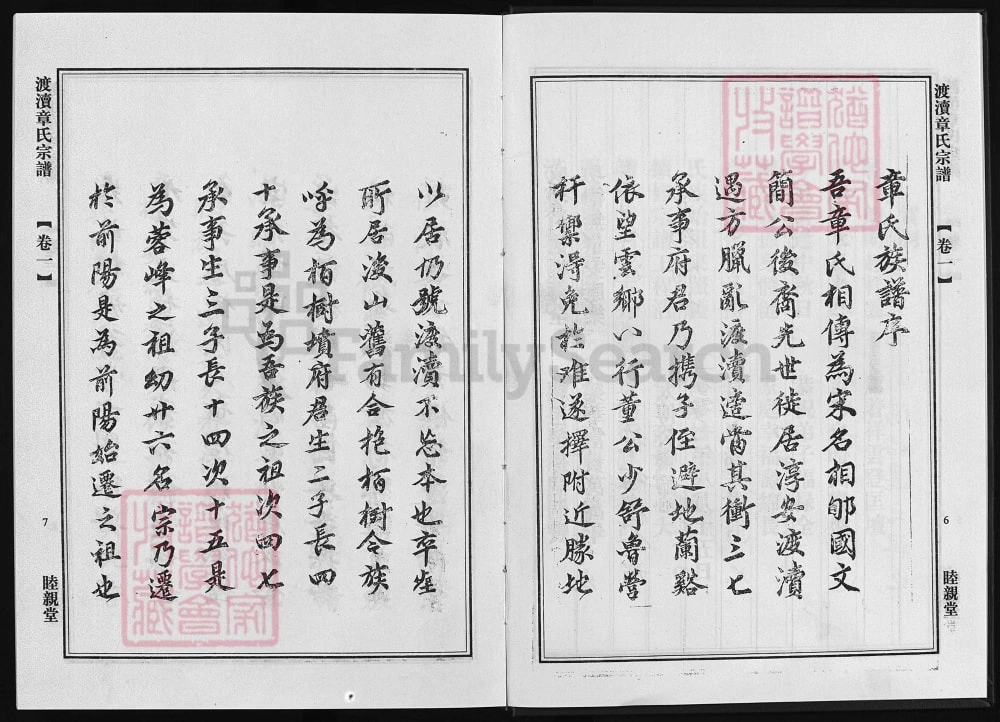 渡瀆章氏宗譜
【卷一】
6
睦親堂
章氏族譜序
吾章氏相傳為宋名相郇國文
簡公後裔先世徙居淳安渡瀆
遇方臘亂渡瀆遭當其衝三七
承事府君乃携子侄避地蘭谿
依望雲鄉八行董公少舒魯營
扞禦得免於难遂擇附近勝地
以居仍號渡瀆不忘本也卒塟
所居後山舊有合抱栢樹令族
呼為栢樹墳府君生二子長四
十承事是為吾族之祖次四七
承事生三子長十四次十五是
為蓉峰之祖幼廿六名宗乃遷
於前陽是為前陽始遷之祖也
渡瀆章氏宗譜
【卷一】
7
睦親堂
猶他家
譜學會
收藏
猶他家
譜學會
收藏
FamilySearch